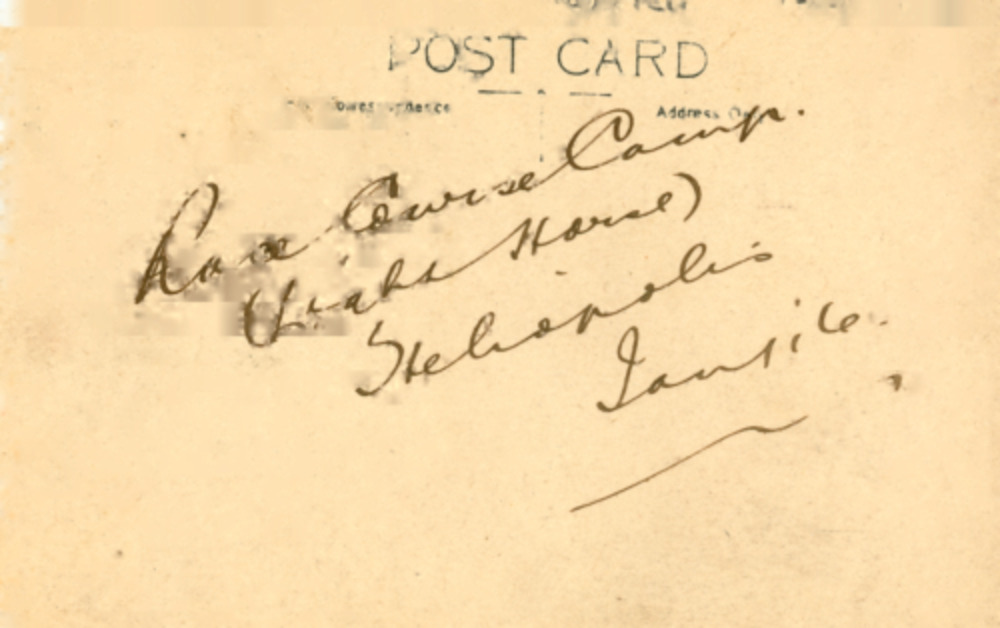 POST CARD
Correspondence
Address Only
Race Course Camp.
(Light Horse)
Heliopolis
Jan /16.